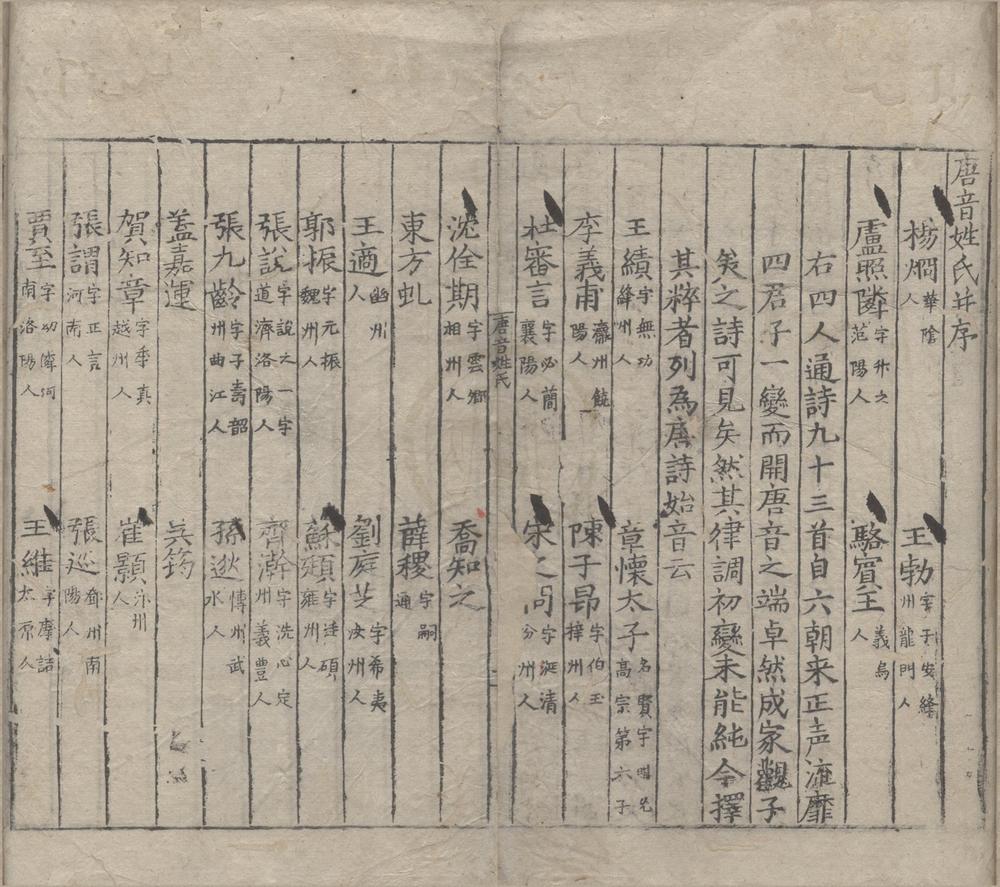 唐音姓氏并序
楊烱華隂人 王勃字子安絳州龍門人
盧照隣字升之范陽人 駱賓王義烏人
右四人通詩九十三首自六朝来正声流靡
四君子一變而開唐音之端卓然成家觀子
矣之詩可見矣然其律調初變未能純今擇
其粹者列為唐詩始音云
王績字無功絳州人 章懷太子名賢字明允高宗第六子
李義甫瀛州饒陽人 陳子昂字伯玉梓州人
杜審言字必簡襄陽人 宋之問字延清汾州人
唐音姓氏
沈佺期字雲卿相州人 喬知之
東方虬 薛稷字嗣通
王適幽州人 劉庭芝字希夷汝州人
郭振字元振魏州人 蘇頲字廷碩雍州人
張說字說之一字道濟洛陽人 齊澣字洗心定州義豐人
張九齡字子壽韶州曲江人 孫逖博州武水人
蓋嘉運 吳筠
賀知章字季真越州人 崔顥汴州人
張謂字正言河南人 張巡鄧州南陽人
賈至字幼隣河南洛陽人 王維字摩詰太原人